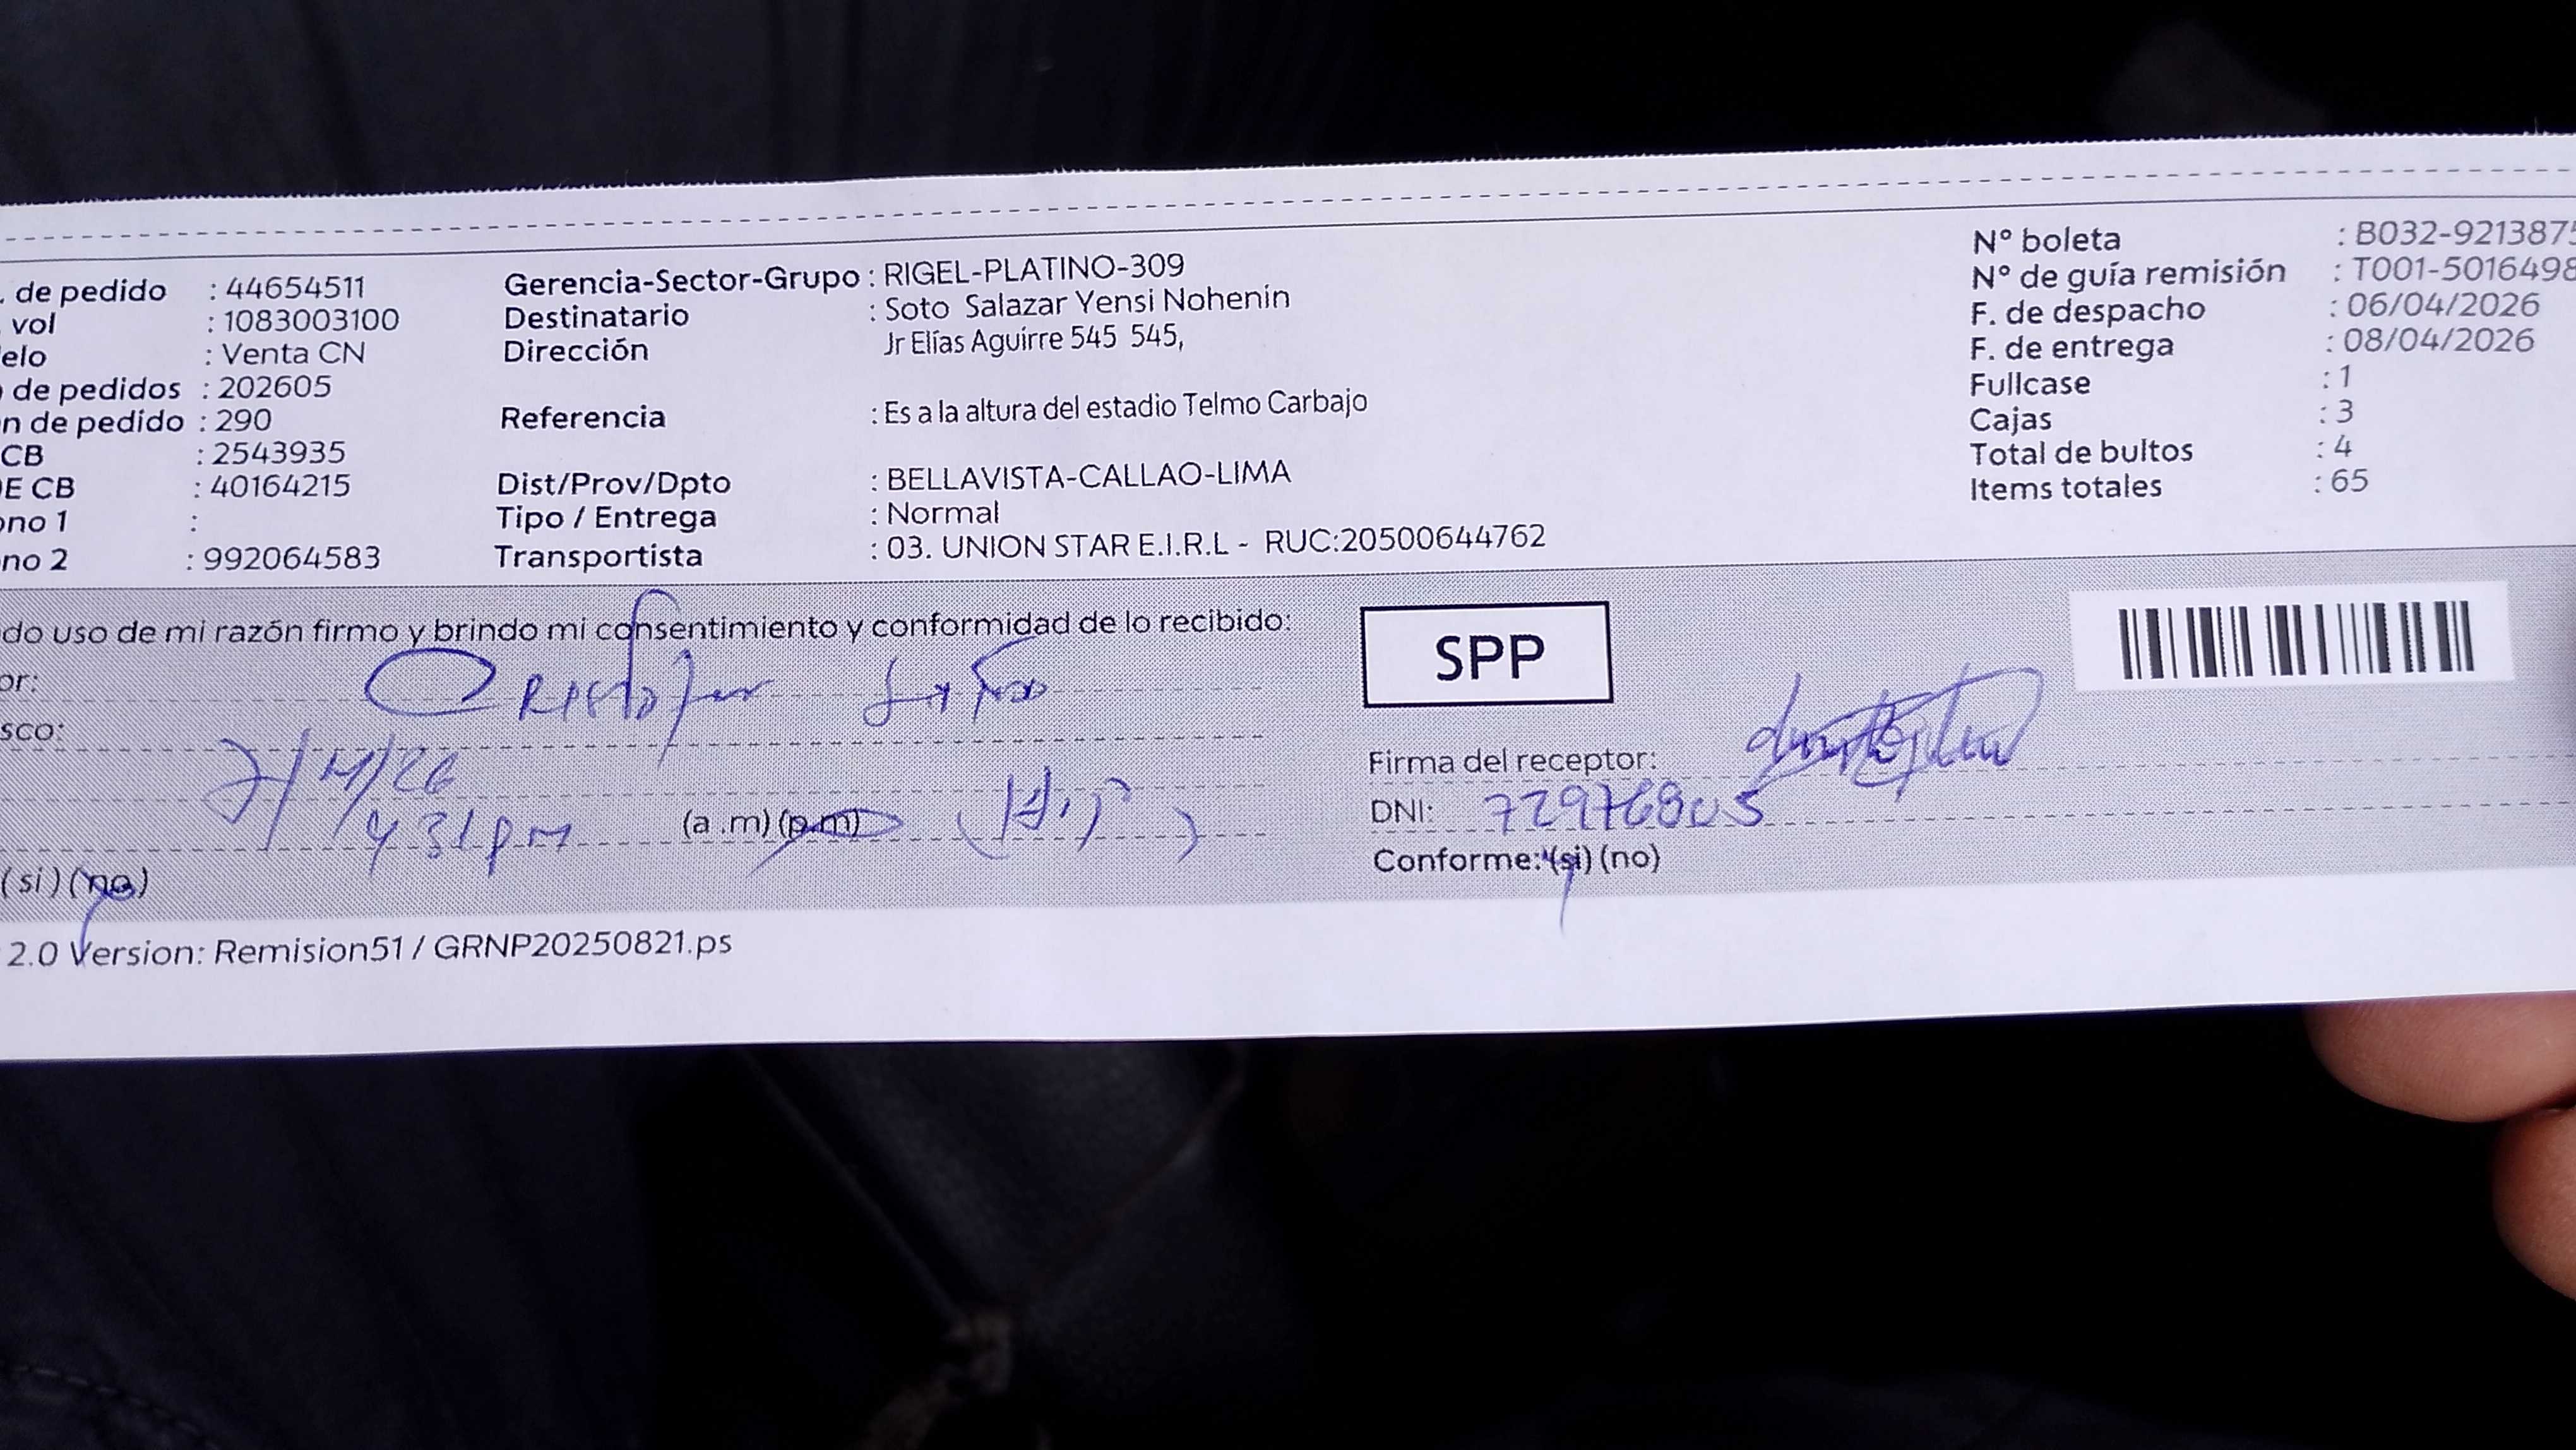 . de pedido : 44654511
vol : 1083003100
elo : Venta CN
de pedidos : 202605
n de pedido : 290
CB : 2543935
E CB : 40164215
ono 1 :
no 2 : 992064583
Gerencia-Sector-Grupo : RIGEL-PLATINO-309
Destinatario : Soto Salazar Yensi Nohenin
Dirección Jr Elías Aguirre 545 545,
Referencia : Es a la altura del estadio Telmo Carbajo
Dist/Prov/Dpto : BELLAVISTA-CALLAO-LIMA
Tipo / Entrega : Normal
Transportista : 03. UNION STAR E.I.R.L - RUC:20500644762
N° boleta : B032-9213875
N° de guía remisión : T001-5016498
F. de despacho : 06/04/2026
F. de entrega : 08/04/2026
Fullcase : 1
Cajas : 3
Total de bultos : 4
Items totales : 65
do uso de mi razón firmo y brindo mi consentimiento y conformidad de lo recibido:
or: Cristofer
sco:
7/4/26
4 31 pm (a .m) (p.m)
(si) (no)
SPP
Firma del receptor:
DNI: 72976805
Conforme: (si) (no)
2.0 Version: Remision51 / GRNP20250821.ps